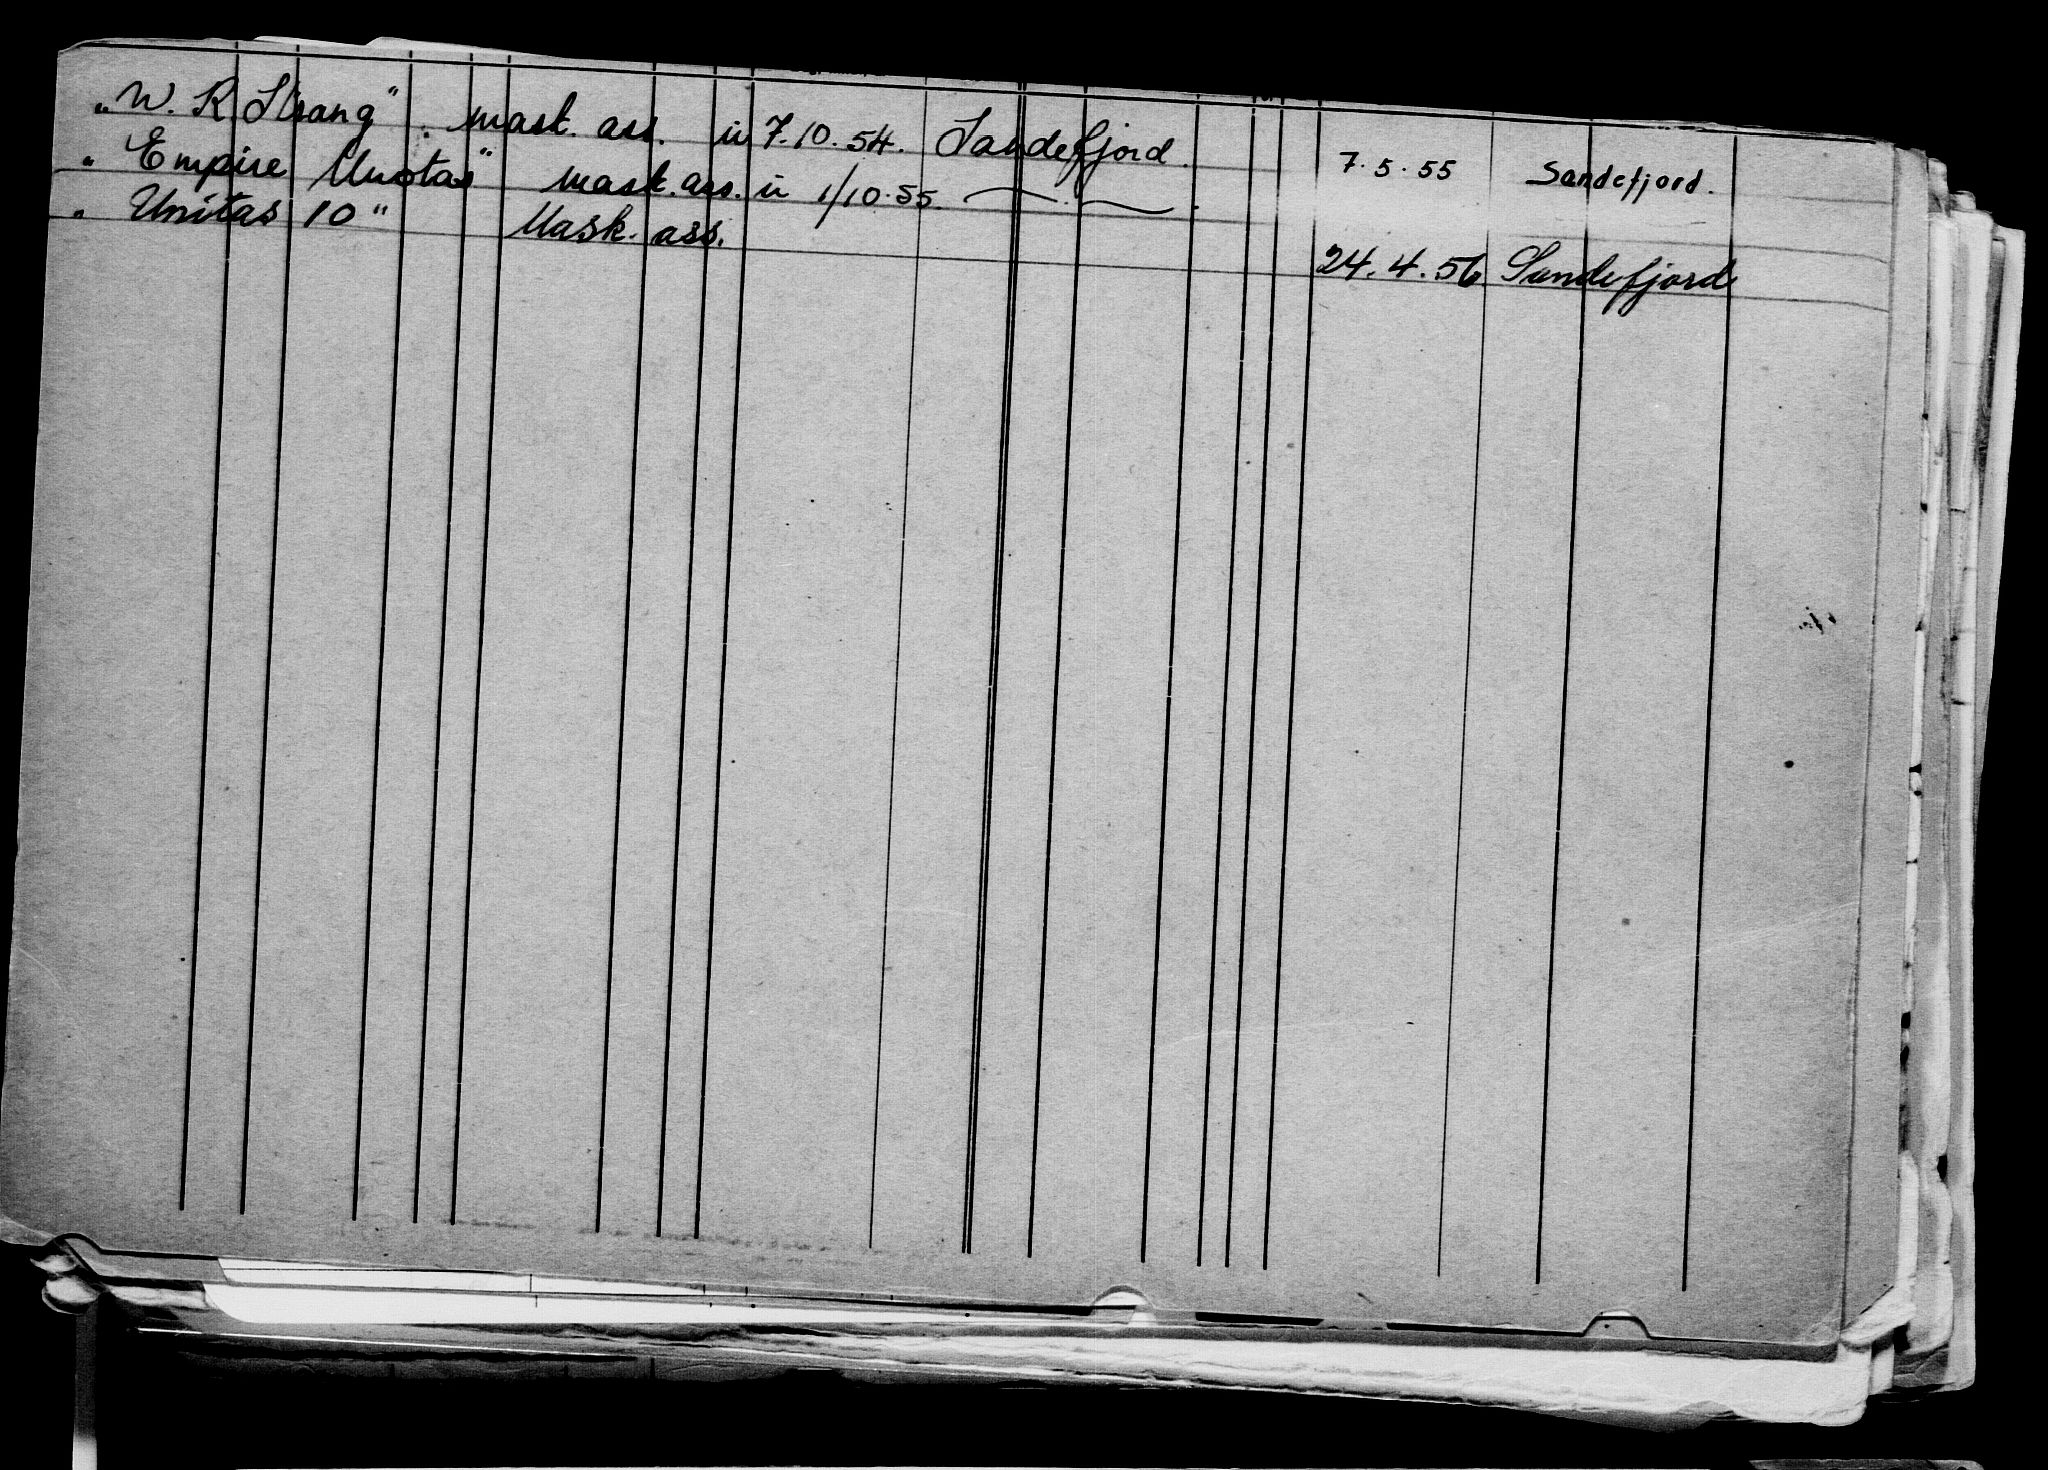 "W. R Strang" mask. ass. u 7.10.54. Sandefjord. 7.5.55 Sandefjord.
" Empire Unitas" mask. ass. u 1/10.55.
" Unitas 10" Mask. ass. 24.4.56 Sandefjord